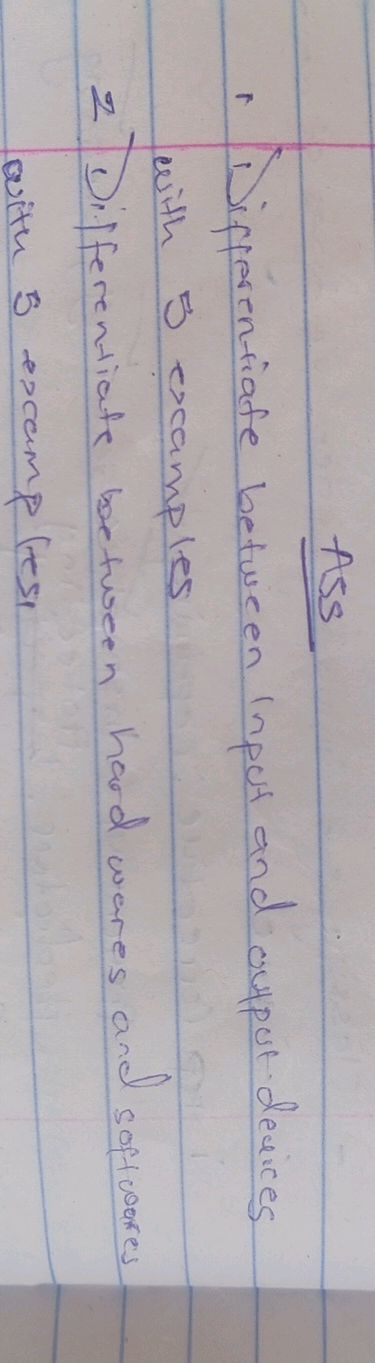 Ass
1 Differentiate between Input and output devices
with 5 examples
2 Differentiate between hard wares and softwares
with 5 examples.